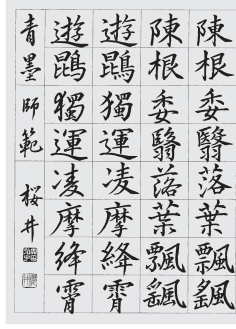 陳根委翳落葉飄颻
陳根委翳落葉飄颻
遊鵾獨運凌摩絳霄
遊鵾獨運凌摩絳霄
青墨師範 桜井